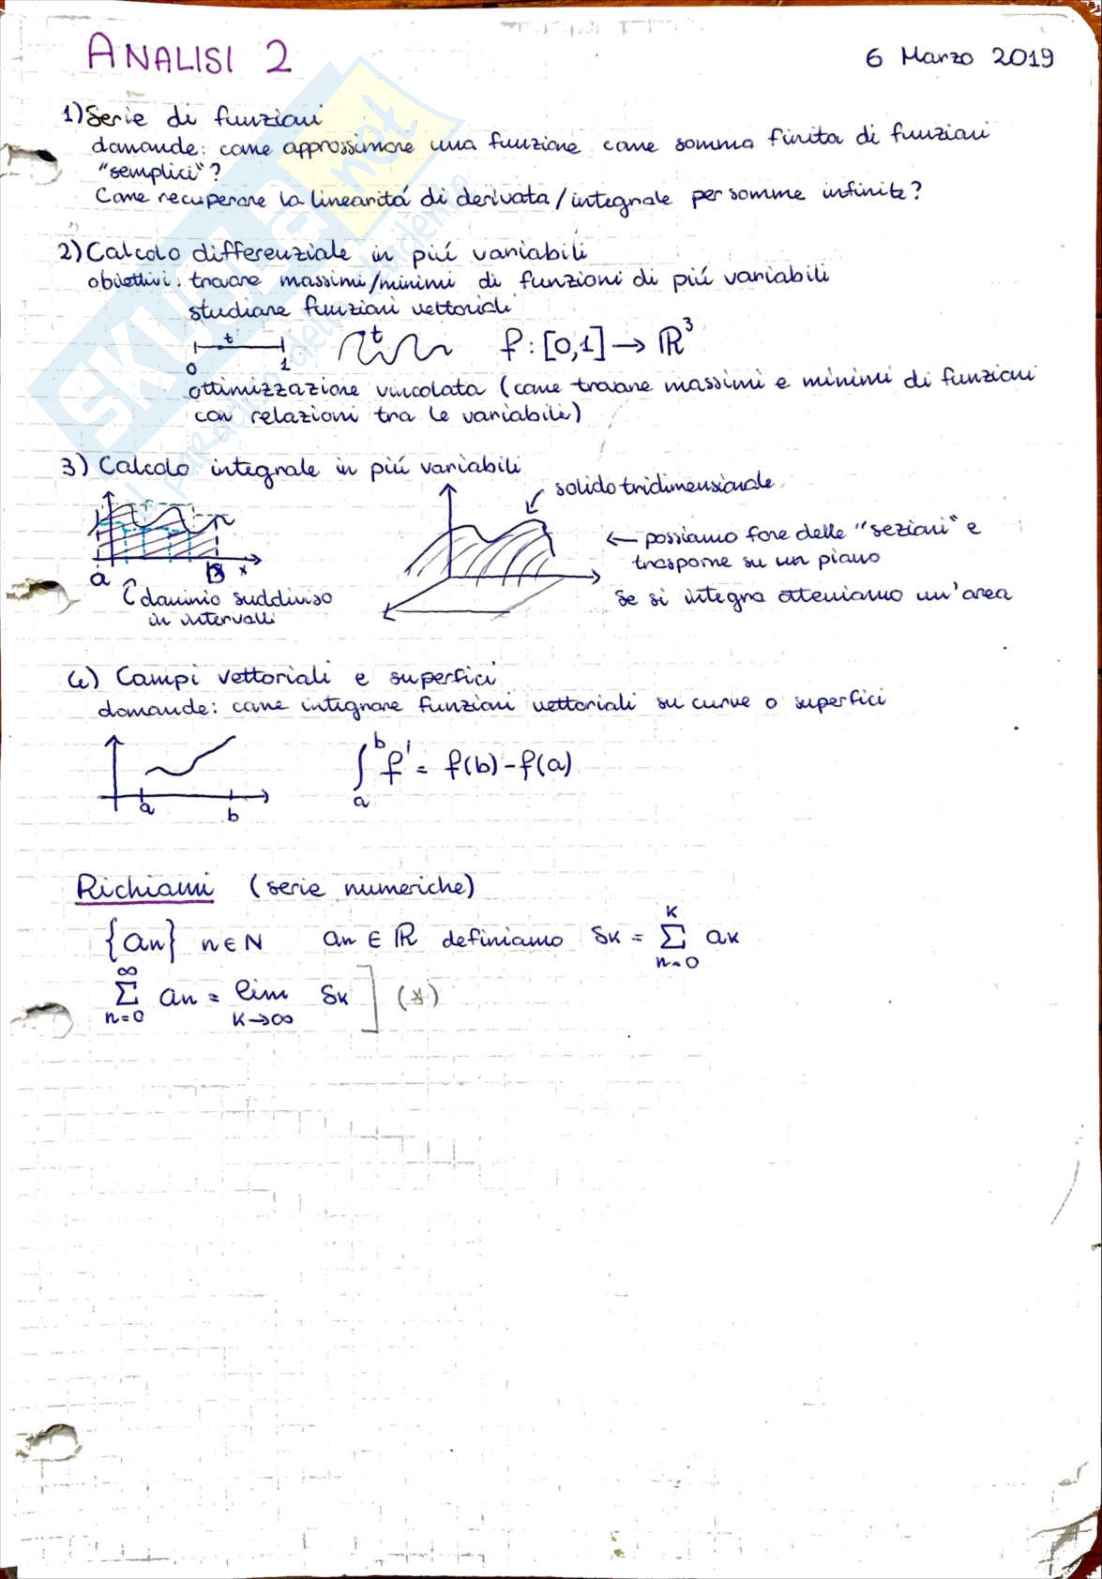 ANALISI 2
6 Marzo 2019
1) Serie di funzioni
domande: come approssimare una funzione come somma finita di funzioni
"semplici"?
Come recuperare la linearitá di derivata/integrale per somme infinite?
2) Calcolo differenziale in piú variabili
obiettivi: trovare massimi/minimi di funzioni di piú variabili
studiare funzioni vettoriali
t t f : [0,1] → ℝ³
0 1
ottimizzazione vincolata (come trovare massimi e minimi di funzioni
con relazioni tra le variabili)
3) Calcolo integrale in piú variabili
solido tridimensionale
← possiamo fare delle "sezioni" e
trasporre su un piano
a B x
se si integra otteniamo un'area
↑ dominio suddiviso
in intervalli
4) Campi vettoriali e superfici
domande: come integrare funzioni vettoriali su curve o superfici
∫ₐᵇ f' = f(b) - f(a)
a b
Richiami (serie numeriche)
{an} n ∈ N an ∈ ℝ definiamo Sk = Σ_{n=0}^{K} ak
Σ_{n=0}^{∞} an = lim_{K→∞} Sk ] (*)
SKUOLA.net